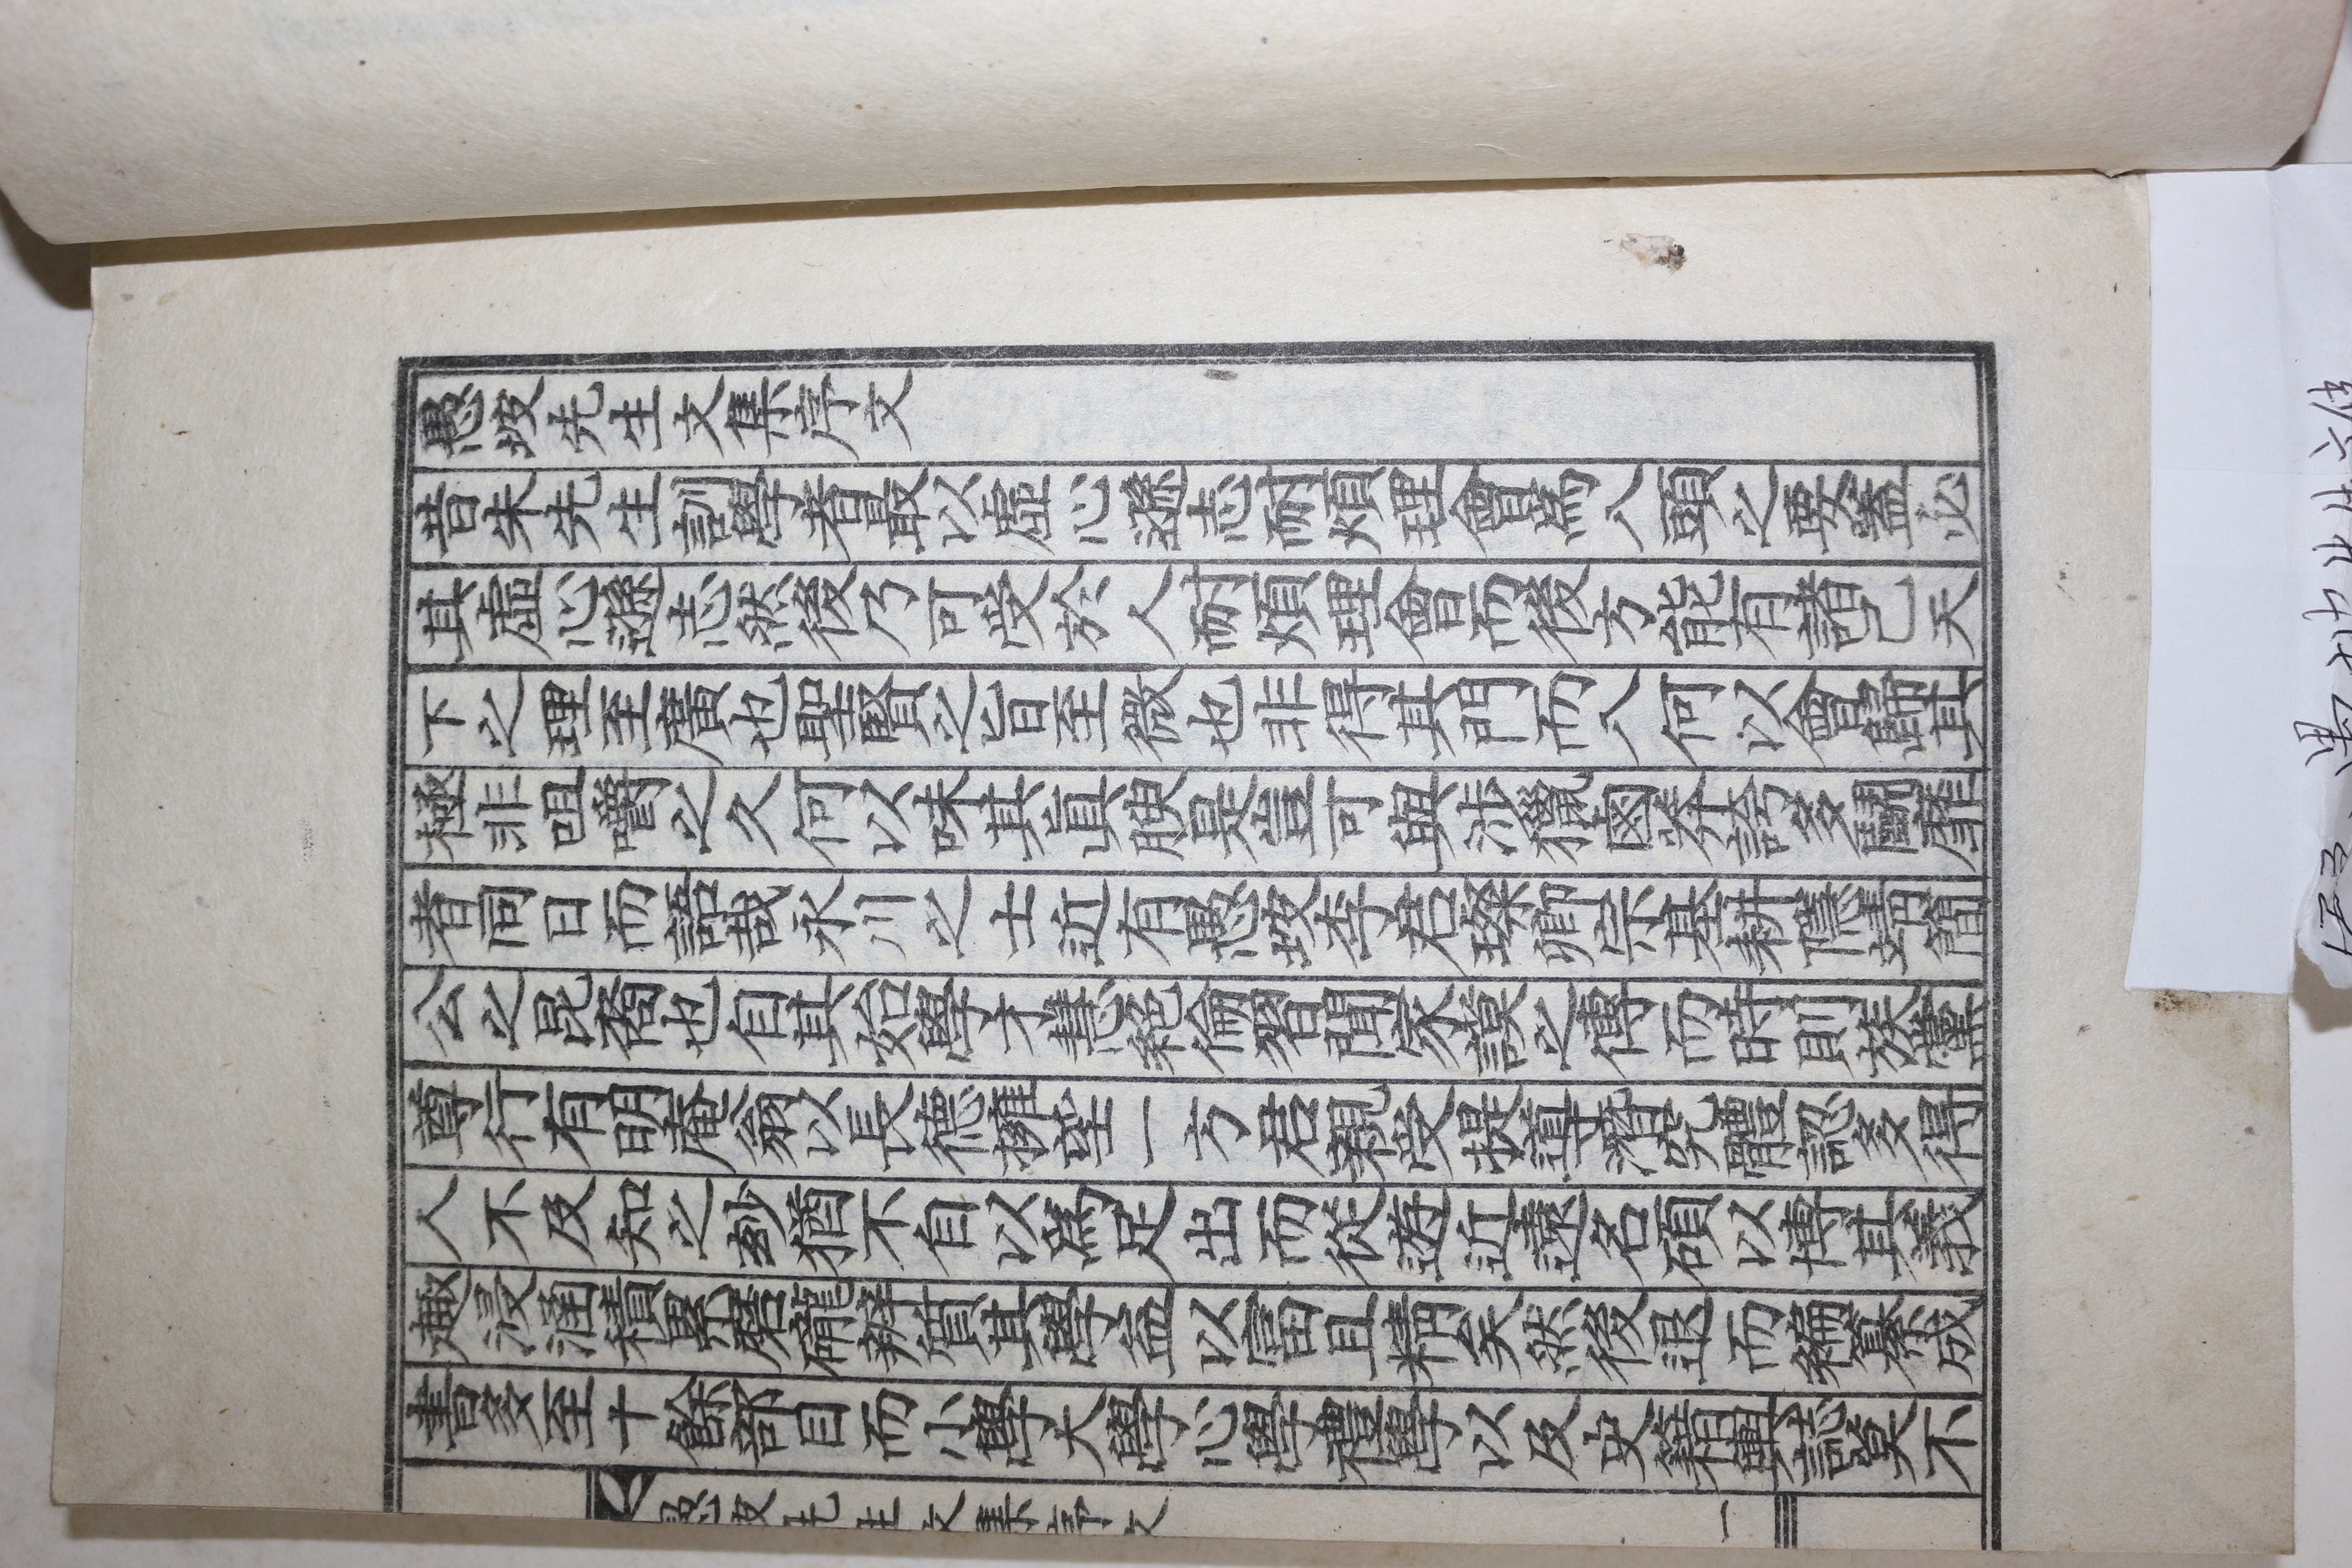 愚坡先生文集序文
昔朱先生訓學者最以虛心遜志耐煩理會爲入頭之要蓋必
其虛心遜志然後乃可受於人耐煩理會而後方能有諸己天
下之理至廣也聖賢之旨至微也非得其門而入何以會歸其
極非咀嚼之久何以味其眞腴是豈可與涉獵鹵莽誇多鬪靡
者同日而語哉永川之士近有愚坡李君璨卿宗基耕隱靖簡
公之昆裔也自其始學才慧絕倫習聞家謨之傳而時則族黨
尊行有明庵翁以長德擁望一方君親受提導潛究體認多得
人不及知之玅猶不自以爲足出而從遊近遠名碩以博其義
趣浸涵積累磨礲辨質其學益以富且精矣然後退而編纂成
書多至十餘部目而小學大學心學禮學以及史籍輿誌莫不
愚坡先生文集序文
一